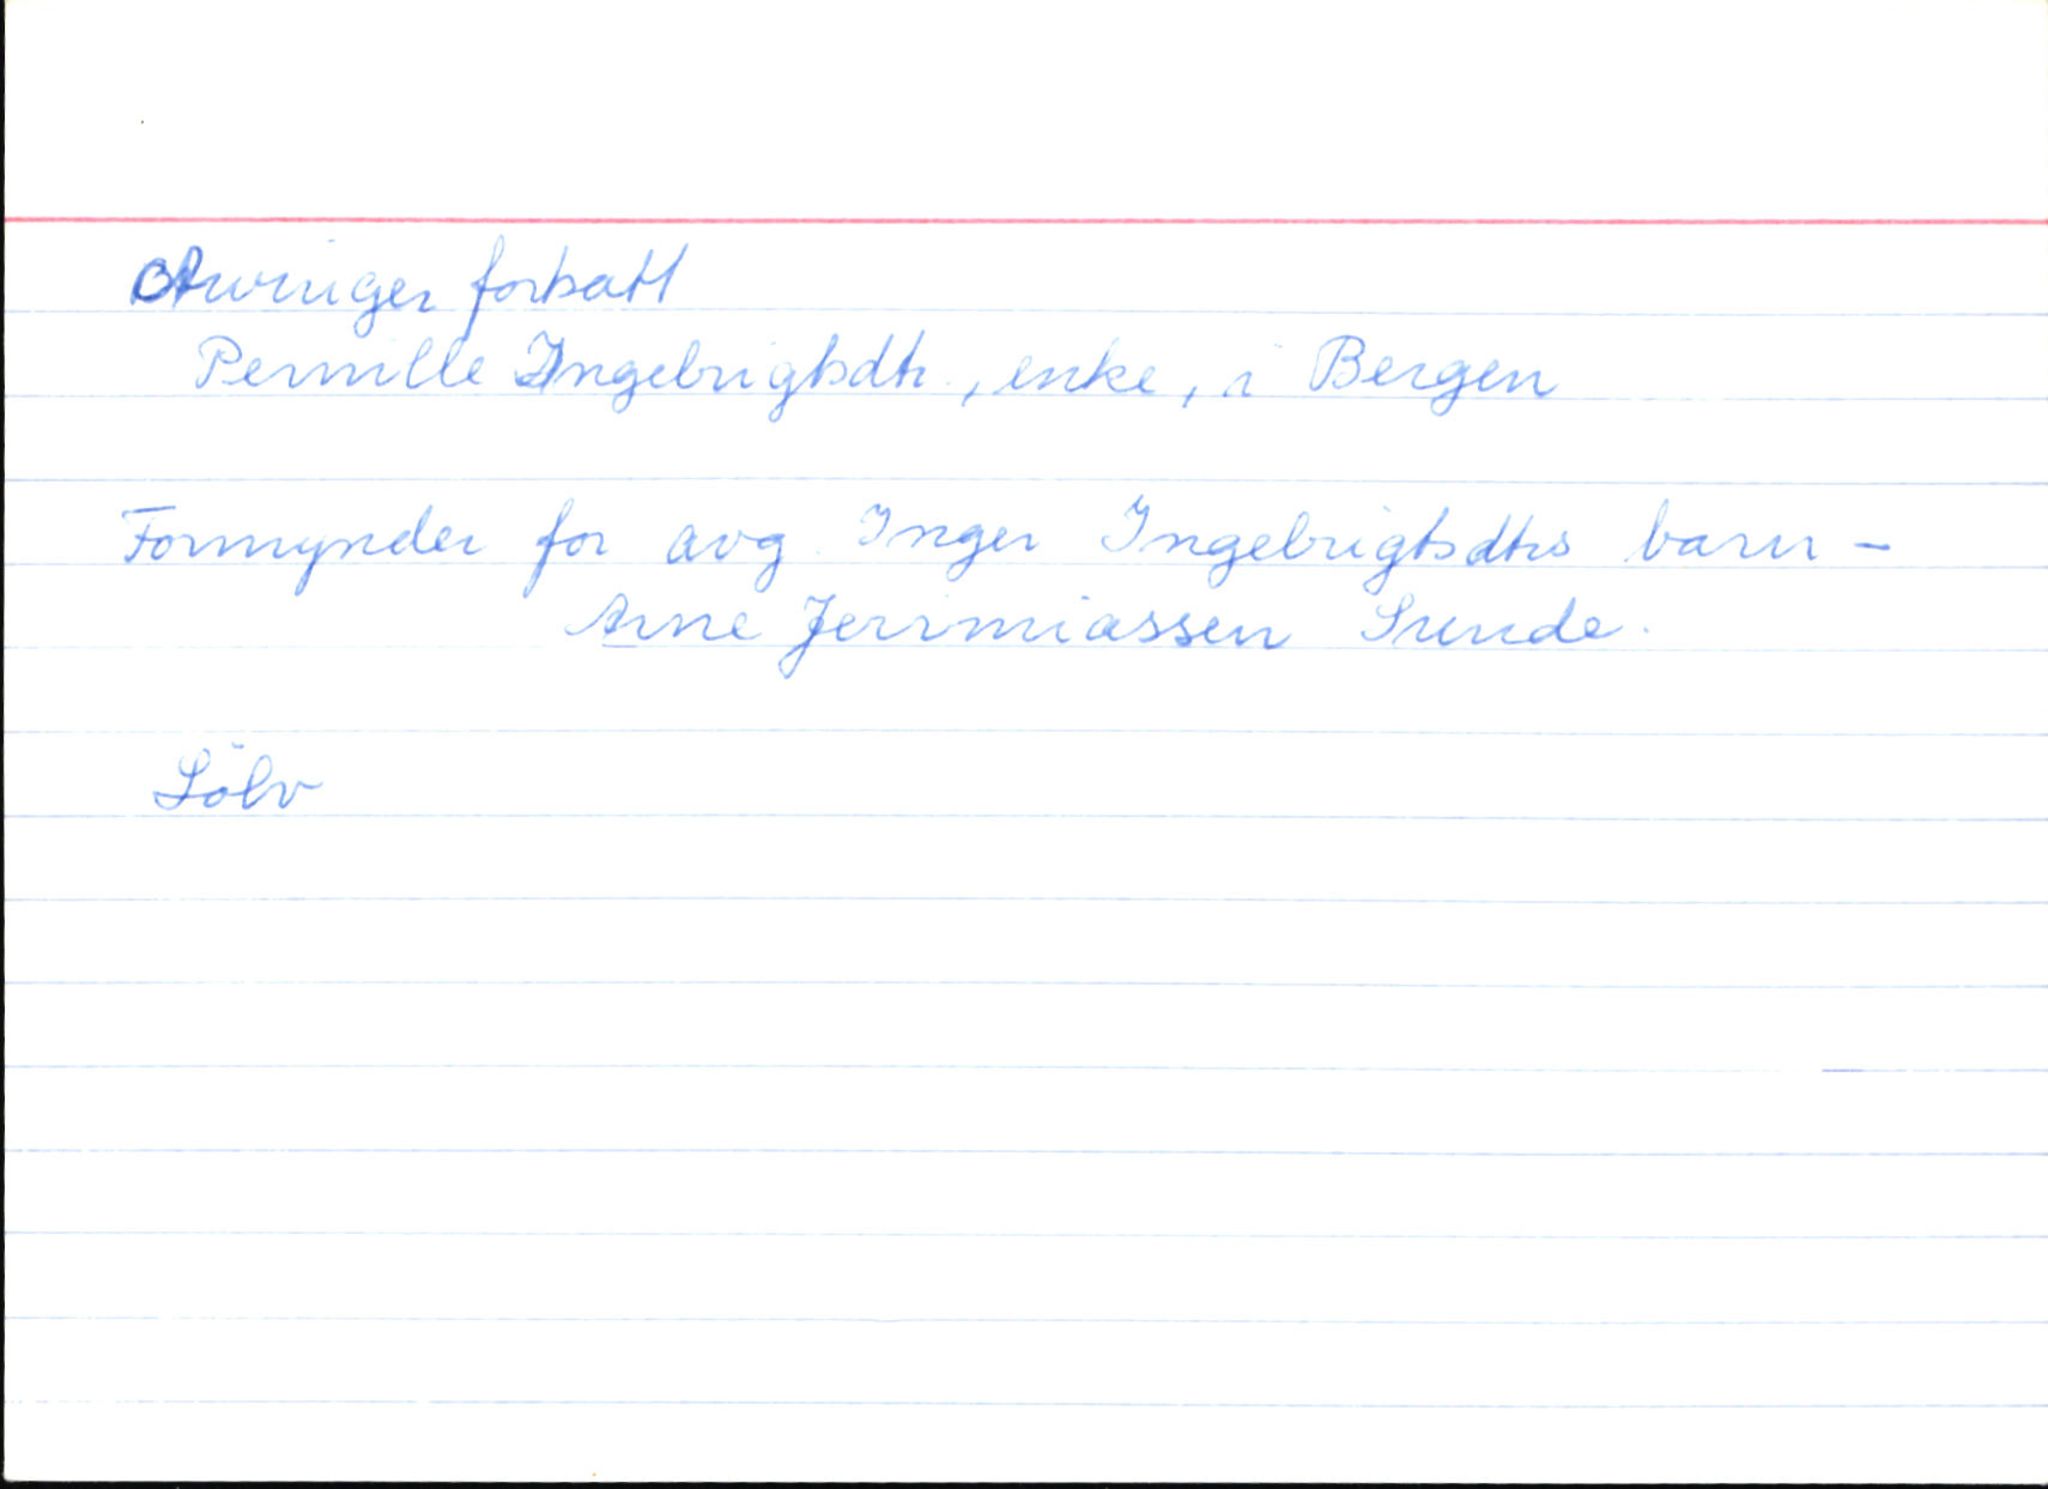 Arvinger fortsatt
Pernille Ingebrigtsdtr., enke, i Bergen
Formynder for avg. Inger Ingebrigtsdtrs barn -
Arne Jerrmiassen Sunde.
Sölv